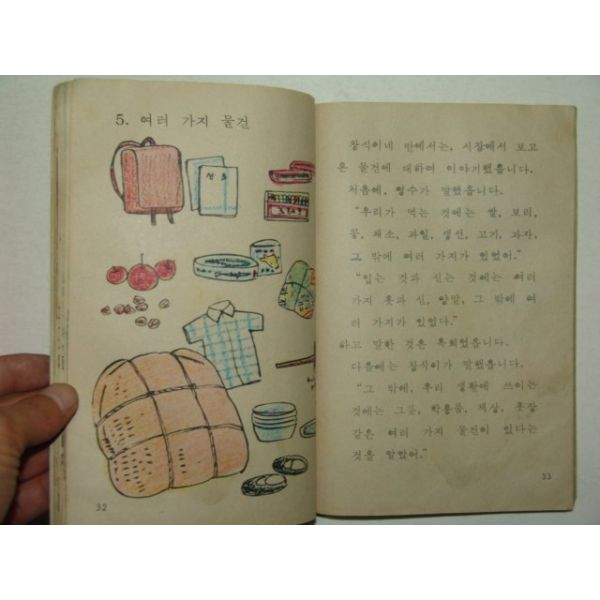 5. 여러 가지 물건
산수
32
창식이네 반에서는, 시장에서 보고
온 물건에 대하여 이야기했읍니다.
처음에, 형수가 말했읍니다.
"우리가 먹는 것에는 쌀, 보리,
콩, 채소, 과일, 생선, 고기, 과자,
그 밖에 여러 가지가 있었어."
"입는 것과 신는 것에는 여러
가지 옷과 신, 양말, 그 밖에 여
러 가지가 있었다."
하고 말한 것은 옥희였읍니다.
다음에는 창식이가 말했읍니다.
"그 밖에, 우리 생활에 쓰이는
것에는 그릇, 학용품, 책상, 옷장
같은 여러 가지 물건이 있다는
것을 알았어."
33